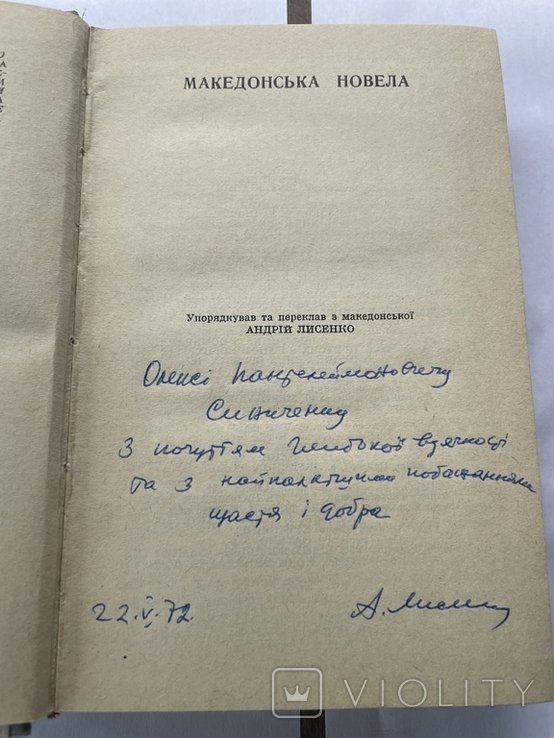 МАКЕДОНСЬКА НОВЕЛА
Упорядкував та переклав з македонської
АНДРІЙ ЛИСЕНКО
Олексі Пантелеймоновичу
Синиченку
З почуттям глибокої вдячності
та з найпалкішими побажаннями
щастя і добра
22.V.72.
А. Лисенко
VIOLITY